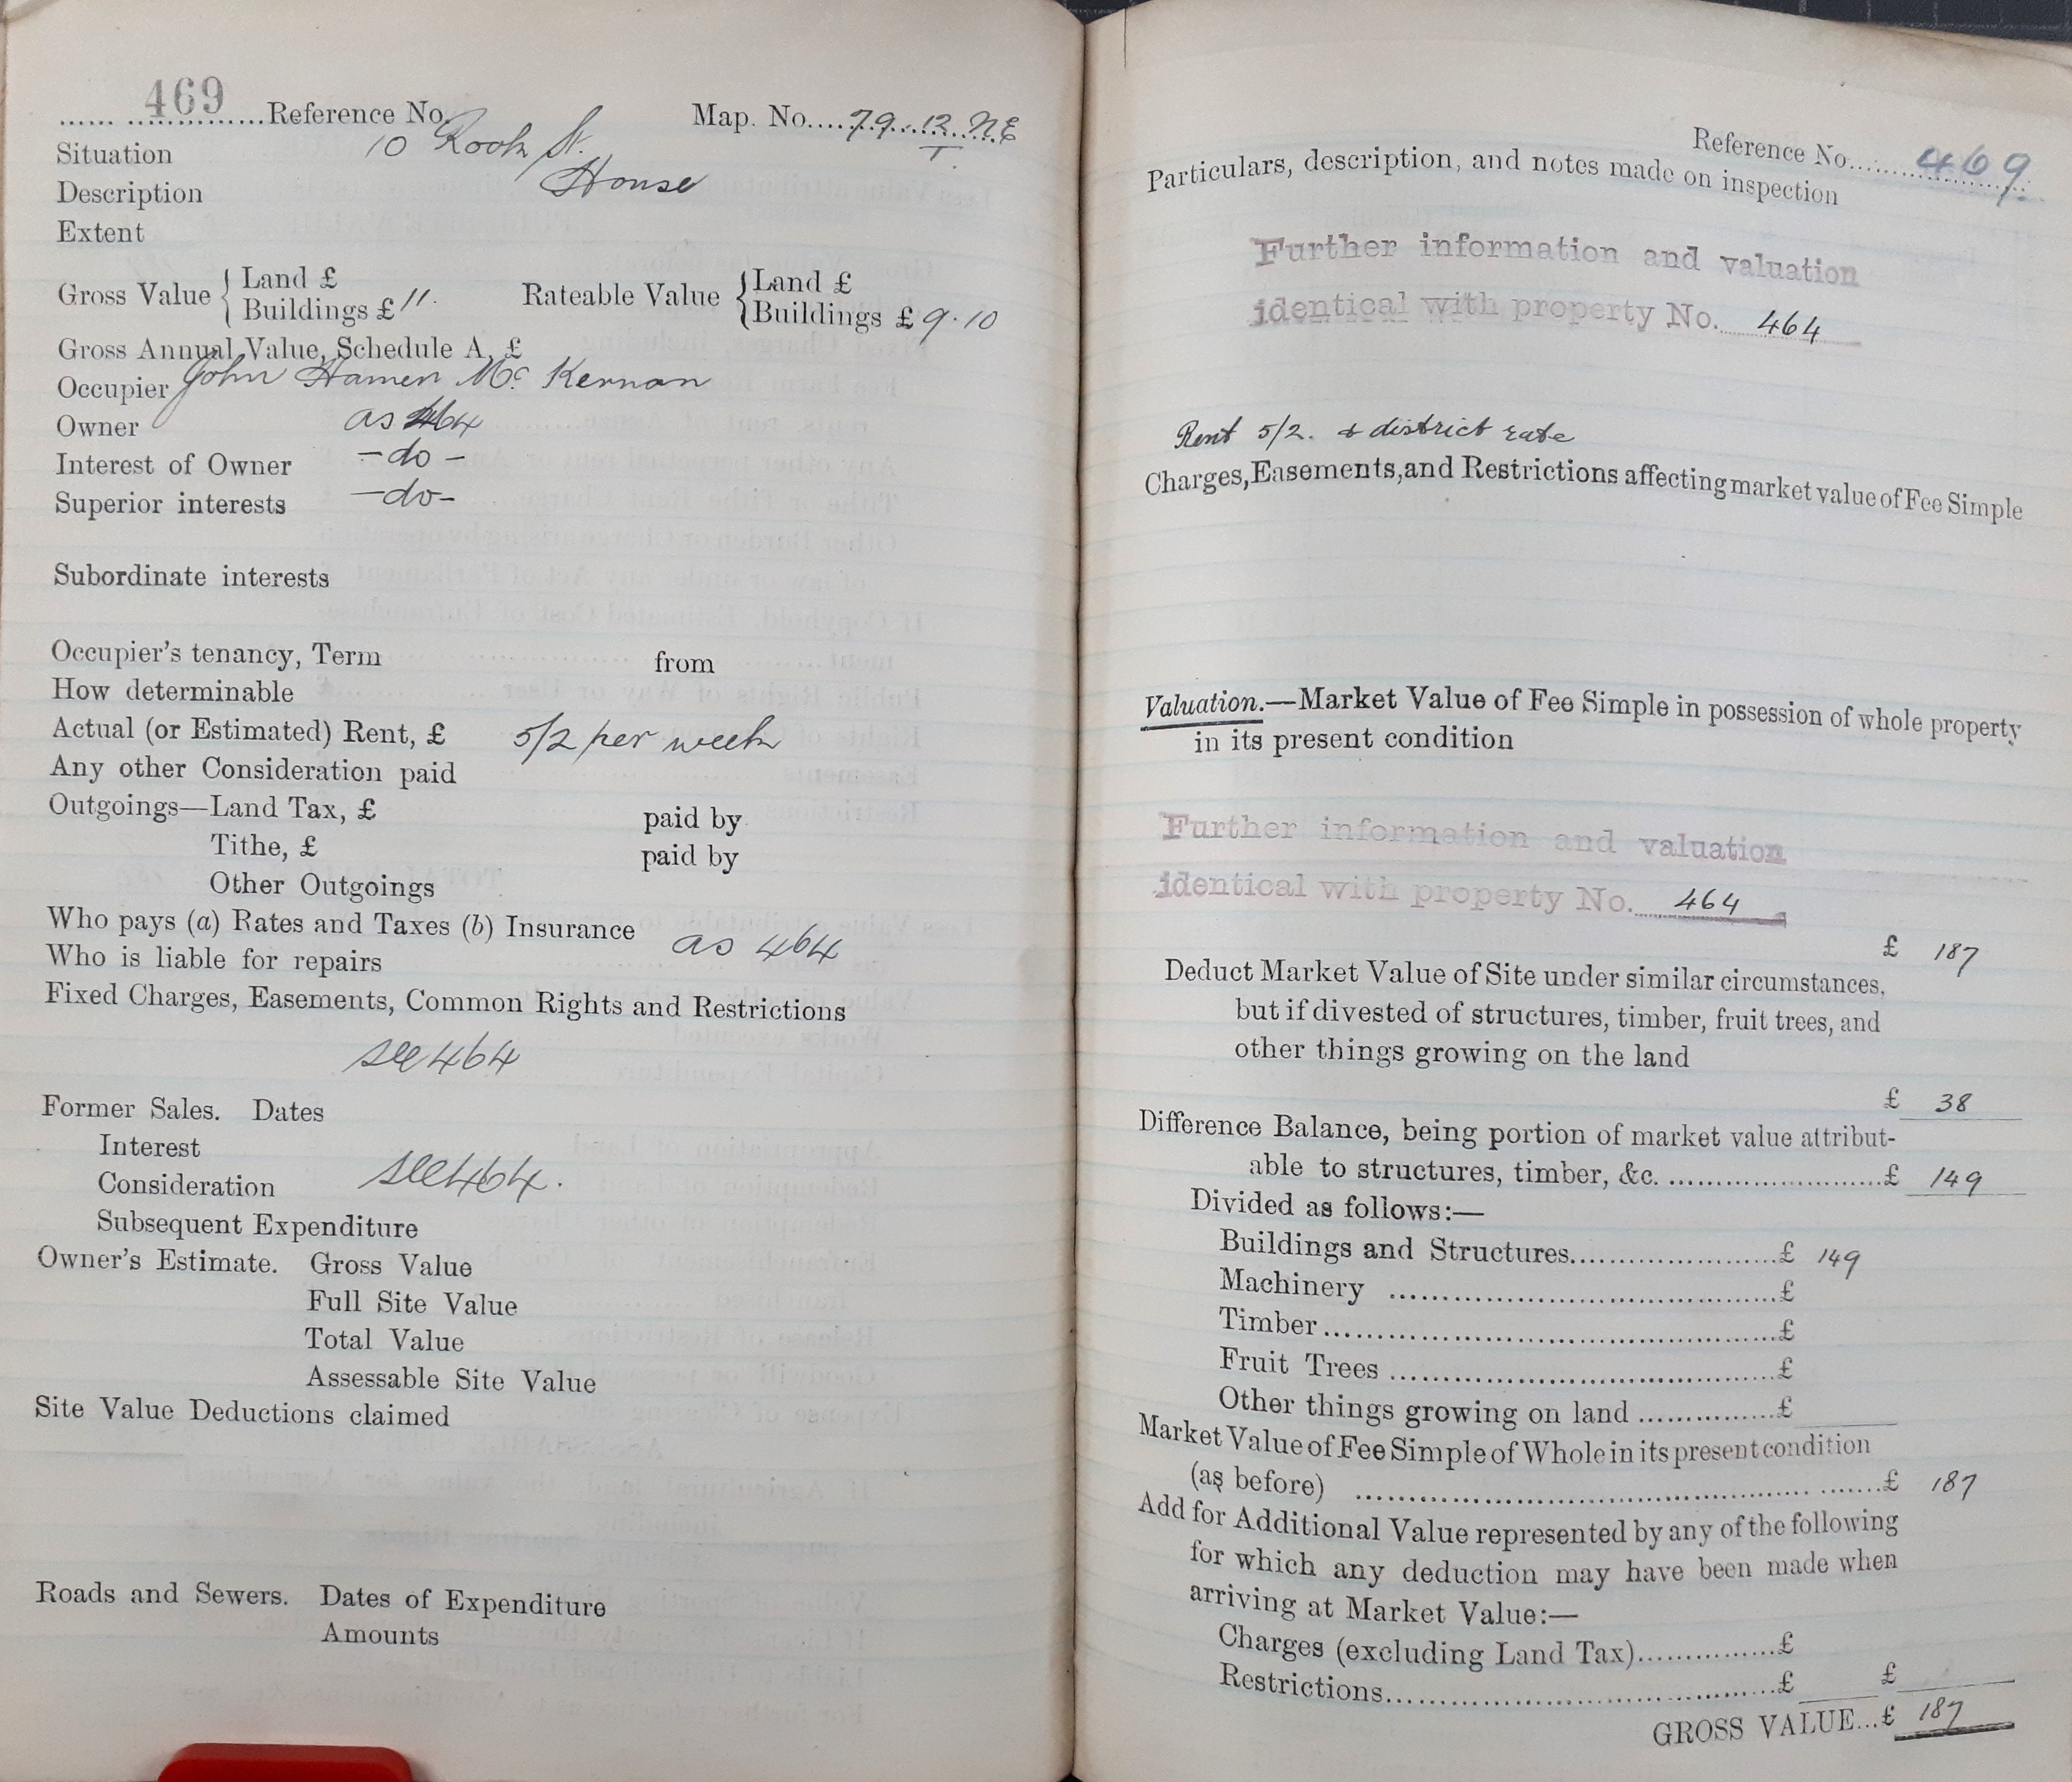 469 Reference No. Map. No. 79.12. N.E
Situation 10 Rook St. 
Description House
Extent
Gross Value { Land £
Buildings £ 11. Rateable Value { Land £
Buildings £ 9.10
Gross Annual Value, Schedule A, £
Occupier John Hamen Mc Kernan
Owner as 464
Interest of Owner - do -
Superior interests - do -
Subordinate interests
Occupier's tenancy, Term from
How determinable
Actual (or Estimated) Rent, £ 5/2 per week
Any other Consideration paid
Outgoings—Land Tax, £ paid by
Tithe, £ paid by
Other Outgoings
Who pays (a) Rates and Taxes (b) Insurance as 464
Who is liable for repairs
Fixed Charges, Easements, Common Rights and Restrictions
see 464
Former Sales. Dates
Interest
Consideration see 464.
Subsequent Expenditure
Owner's Estimate. Gross Value
Full Site Value
Total Value
Assessable Site Value
Site Value Deductions claimed
Roads and Sewers. Dates of Expenditure
Amounts
Reference No. 469.
Particulars, description, and notes made on inspection
Further information and valuation
identical with property No. 464
Rent 5/2. & district rate
Charges, Easements, and Restrictions affecting market value of Fee Simple
Valuation.—Market Value of Fee Simple in possession of whole property
in its present condition
Further information and valuation
identical with property No. 464
£ 187
Deduct Market Value of Site under similar circumstances,
but if divested of structures, timber, fruit trees, and
other things growing on the land
£ 38
Difference Balance, being portion of market value attribut-
able to structures, timber, &c. £ 149
Divided as follows:—
Buildings and Structures £ 149
Machinery £
Timber £
Fruit Trees £
Other things growing on land £
Market Value of Fee Simple of Whole in its present condition
(as before) £ 187
Add for Additional Value represented by any of the following
for which any deduction may have been made when
arriving at Market Value:—
Charges (excluding Land Tax) £
Restrictions £ £
GROSS VALUE...£ 187